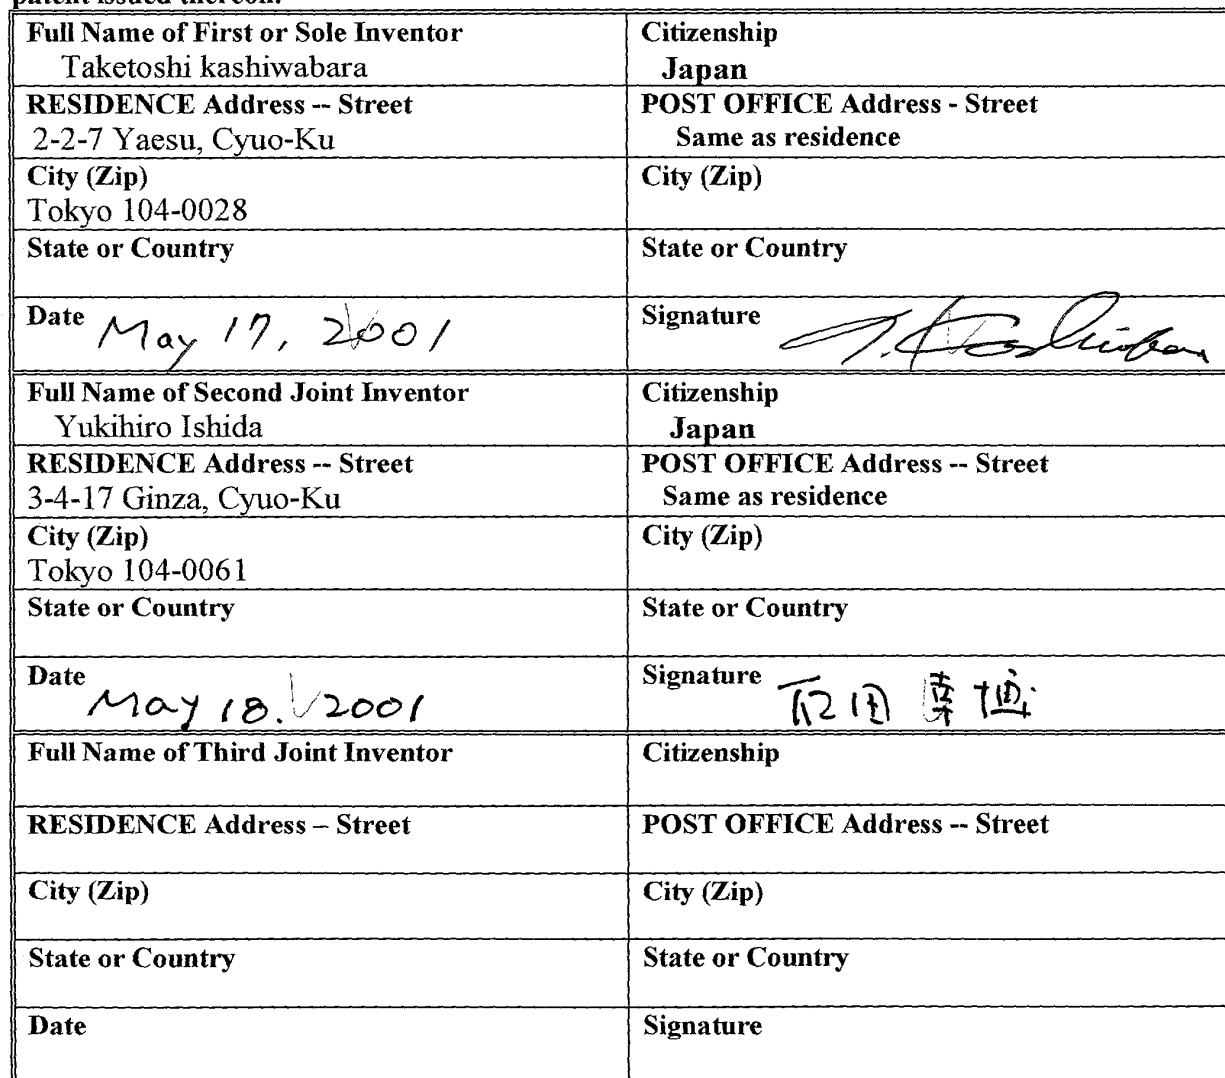 patent issued thereon.
Full Name of First or Sole Inventor
Taketoshi kashiwabara
Citizenship
Japan
RESIDENCE Address -- Street
2-2-7 Yaesu, Cyuo-Ku
POST OFFICE Address - Street
Same as residence
City (Zip)
Tokyo 104-0028
City (Zip)
State or Country
State or Country
Date May 17, 2001
Signature
Full Name of Second Joint Inventor
Yukihiro Ishida
Citizenship
Japan
RESIDENCE Address -- Street
3-4-17 Ginza, Cyuo-Ku
POST OFFICE Address -- Street
Same as residence
City (Zip)
Tokyo 104-0061
City (Zip)
State or Country
State or Country
Date May 18. 2001
Signature
Full Name of Third Joint Inventor
Citizenship
RESIDENCE Address – Street
POST OFFICE Address -- Street
City (Zip)
City (Zip)
State or Country
State or Country
Date
Signature